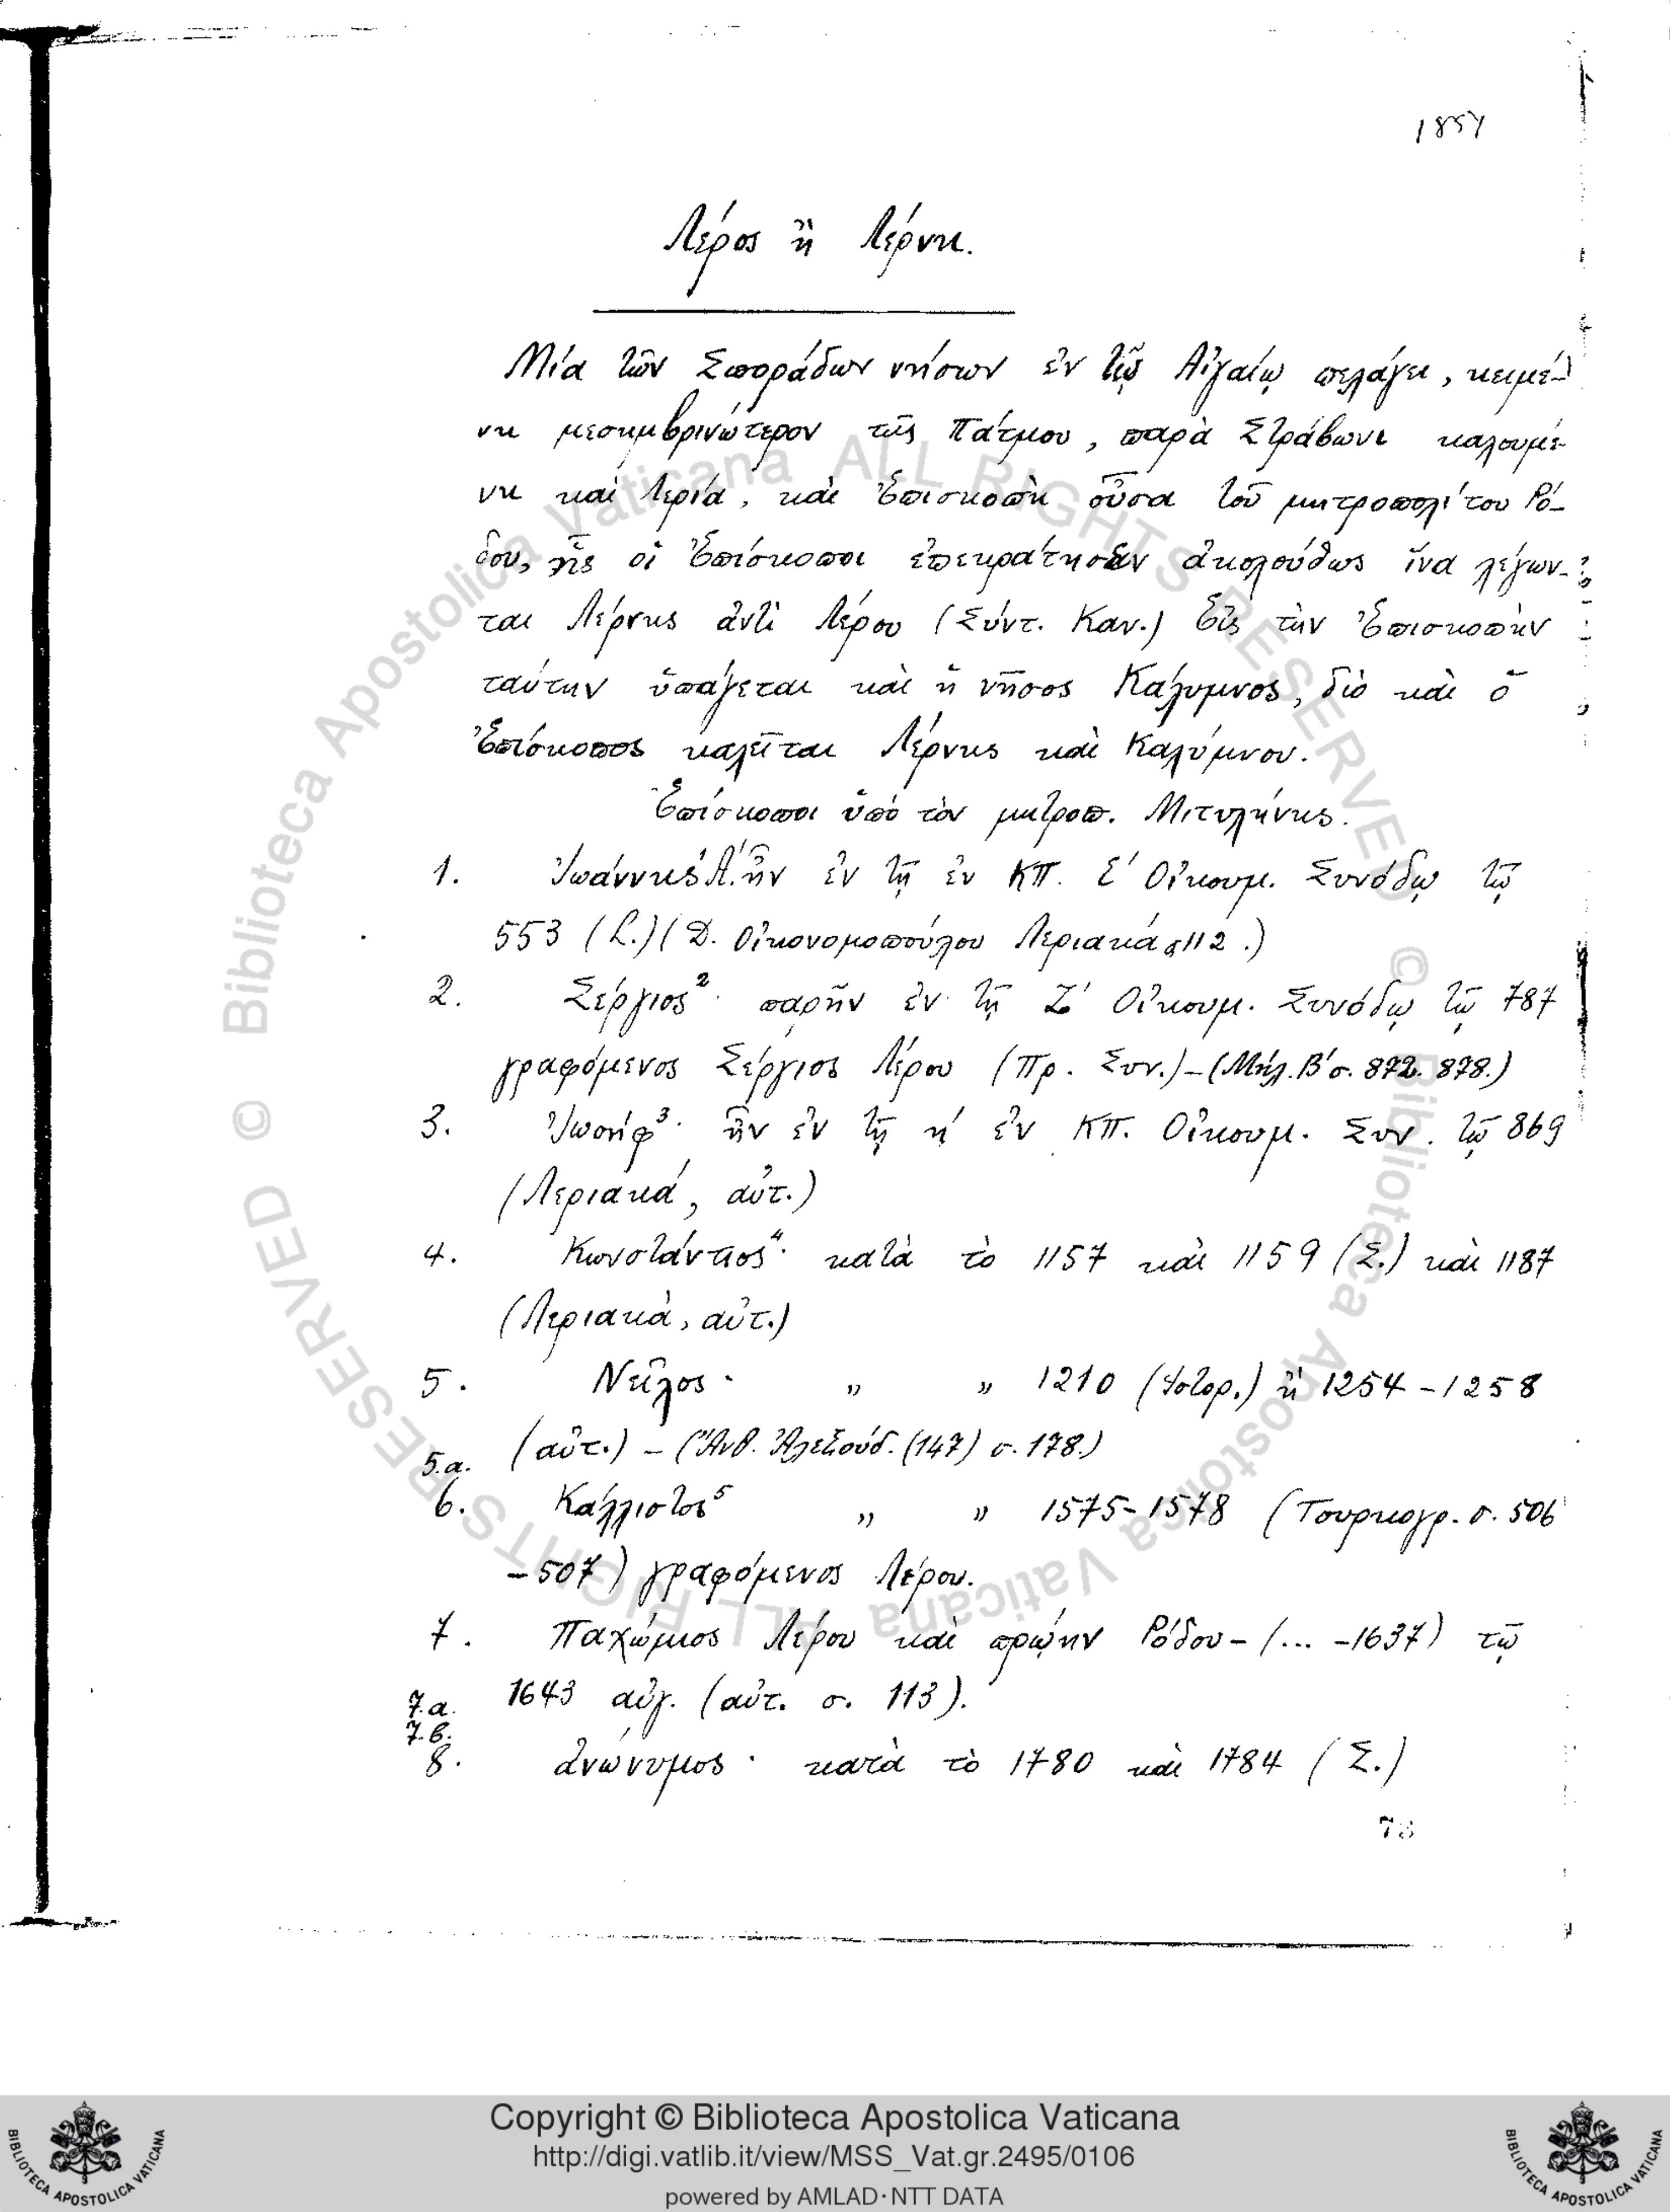 185γ
Λέρος ἢ Λέρνη.
Μία τῶν Σποράδων νήσων ἐν τῷ Αἰγαίῳ πελάγει, κειμέ-
νη μεσημβρινώτερον τῆς Πάτμου, παρὰ Στράβωνι καλουμέ-
νη καὶ Λερία, καὶ Ἐπισκοπὴ οὖσα τοῦ μητροπολίτου Ρό-
δου, ἧς οἱ Ἐπίσκοποι ἐπεκράτησαν ἀκολούθως ἵνα λέγων-
ται Λέρνης ἀντὶ Λέρου (Σύντ. Καν.) Εἰς τὴν Ἐπισκοπὴν
ταύτην ὑπάγεται καὶ ἡ νῆσος Κάλυμνος, διὸ καὶ ὁ
Ἐπίσκοπος καλεῖται Λέρνης καὶ Καλύμνου.
Ἐπίσκοποι ὑπὸ τὸν μητροπ. Μιτυλήνης.
1. Ἰωάννης Α΄. ἦν ἐν τῇ ἐν ΚΠ. Ε΄ Οἰκουμ. Συνόδῳ τῷ
553 (L.) (Δ. Οἰκονομοπούλου Λεριακά σ 112.)
2. Σέργιος² · παρῆν ἐν τῇ Ζ΄ Οἰκουμ. Συνόδῳ τῷ 787
γραφόμενος Σέργιος Λέρου (Πρ. Συν.) – (Μήλ. Β΄ σ. 872. 878.)
3. Ἰωσήφ³ · ἦν ἐν τῇ η΄ ἐν ΚΠ. Οἰκουμ. Συν. τῷ 869
(Λεριακά, αὐτ.)
4. Κωνστάντιος⁴ · κατὰ τὸ 1157 καὶ 1159 (Σ.) καὶ 1187
(Λεριακὰ, αὐτ.)
5. Νεῖλος · „ „ 1210 (Ἱστορ.) ἢ 1254 – 1258
(αὐτ.) – (Ἀνθ. Ἀλεξούδ. (147) σ. 178.)
5.α.
6. Κάλλιστος⁵ „ „ 1575 – 1578 (Τουρκογρ. σ. 506
– 507) γραφόμενος Λέρου.
7. Παχώμιος Λέρου καὶ πρῴην Ρόδου – (... – 1637) τῷ
1643 αὐγ. (αὐτ. σ. 113).
7.α.
7.β.
8. ἀνώνυμος · κατὰ τὸ 1780 καὶ 1784 (Σ.)
© Biblioteca Apostolica Vaticana ALL RIGHTS RESERVED
© Biblioteca Apostolica Vaticana ALL RIGHTS RESERVED
Copyright © Biblioteca Apostolica Vaticana
http://digi.vatlib.it/view/MSS_Vat.gr.2495/0106
powered by AMLAD·NTT DATA
BIBLIOTECA APOSTOLICA VATICANA
BIBLIOTECA APOSTOLICA VATICANA